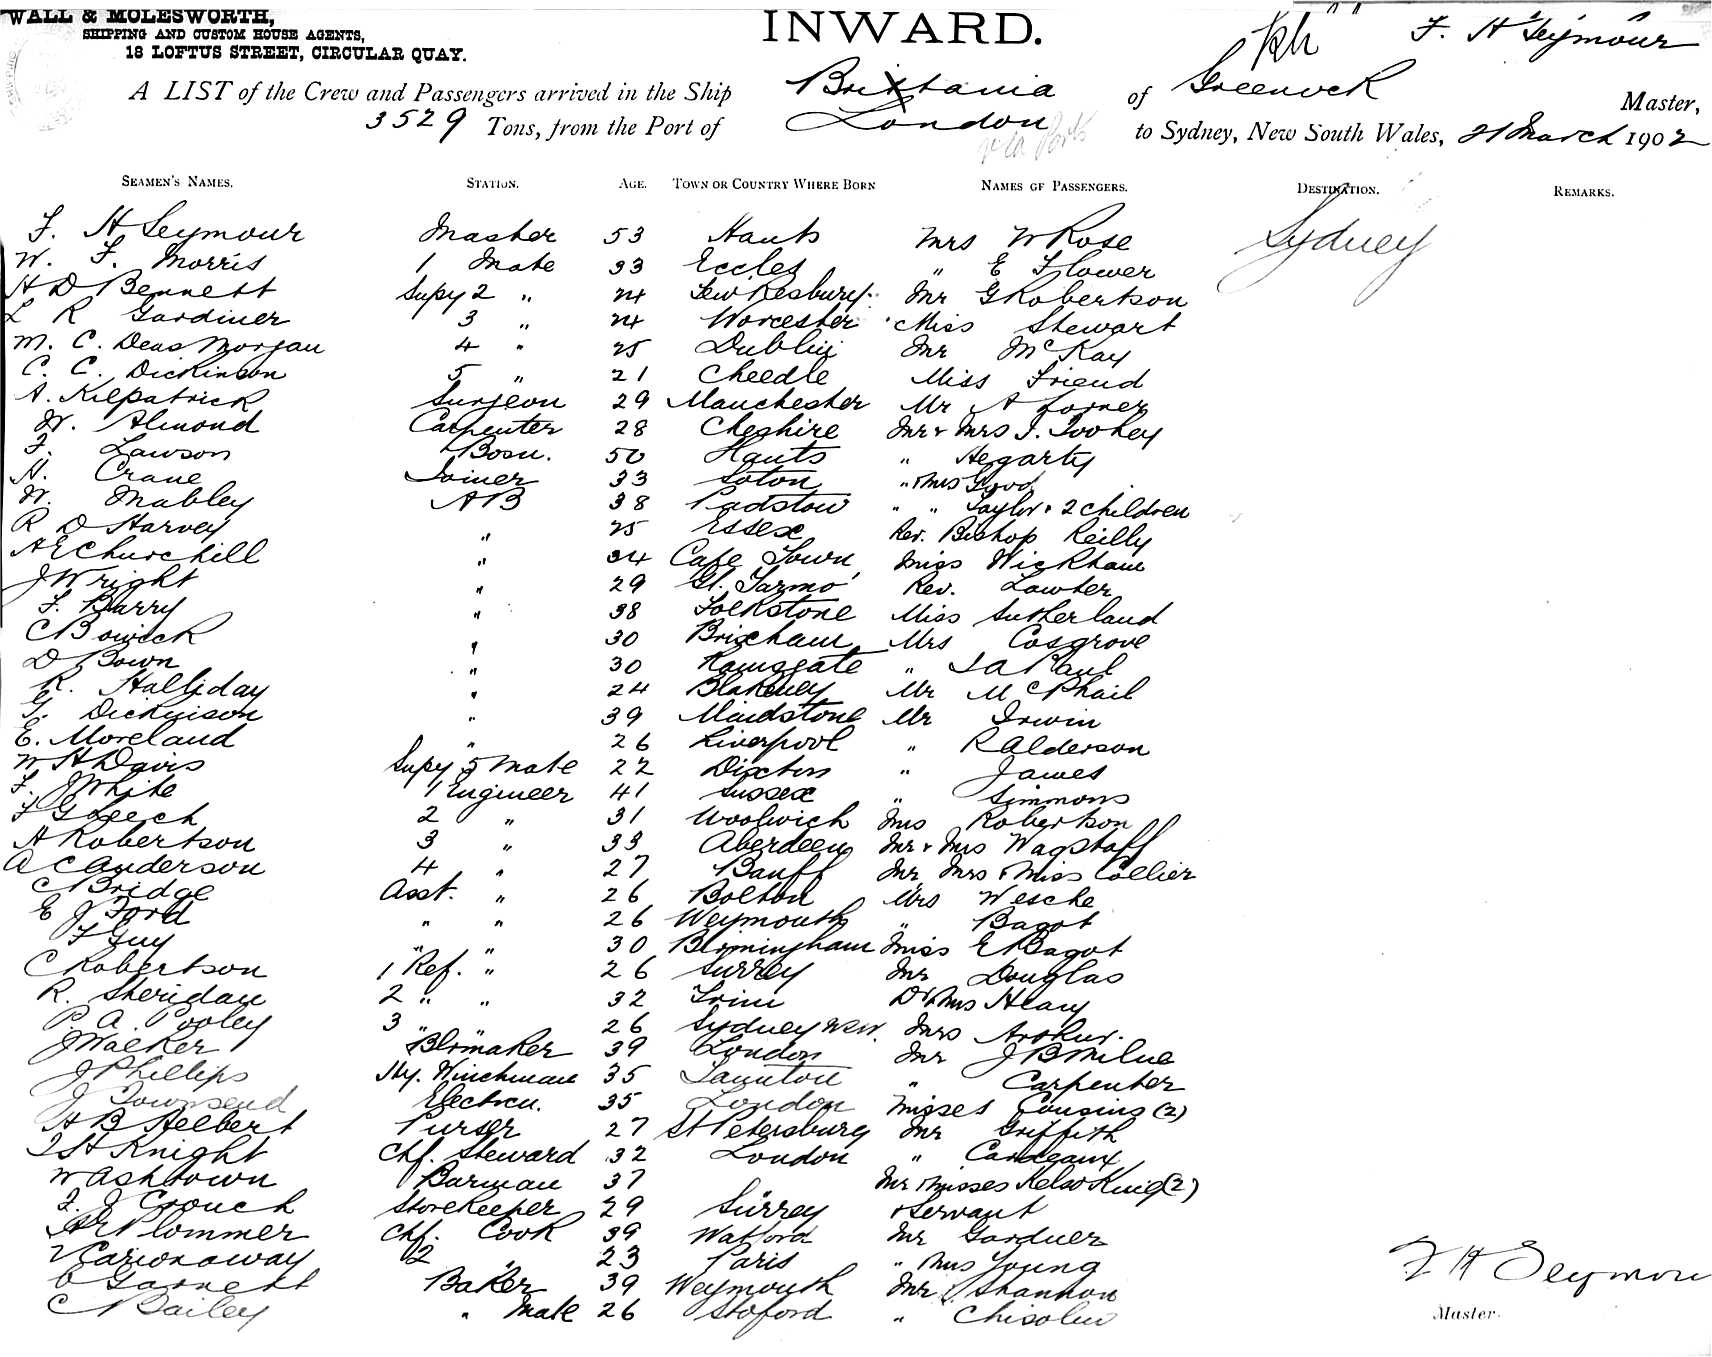 WALL & MOLESWORTH,
SHIPPING AND CUSTOM HOUSE AGENTS,
18 LOFTUS STREET, CIRCULAR QUAY.
INWARD.
F. H Seymour
A LIST of the Crew and Passengers arrived in the Ship Britannia of Greenock Master,
3529 Tons, from the Port of London via Ports to Sydney, New South Wales, 21 March 1902
SEAMEN'S NAMES. STATION. AGE. TOWN OR COUNTRY WHERE BORN NAMES OF PASSENGERS. DESTINATION. REMARKS.
F. H Seymour Master 53 Hants Mrs W Rose Sydney
W. F. Morris 1 Mate 33 Eccles " E Flower
H D Bennett Supy 2 " 24 Tewkesbury Mr G Robertson
L R Gardiner 3 " 24 Worcester Miss Stewart
M. C. Deas Morgan 4 " 25 Dublin Mr McKay
C. C. Dickinson 5 " 21 Cheedle Miss Friend
A. Kilpatrick Surgeon 29 Manchester Mr A
W. Almond Carpenter 28 Cheshire Mr & Mrs J. Toohey
F. Lawson Bosn. 50 Hants " Hegarty
H. Crane Joiner 33 Soton " & Mrs Good
W. Mabley AB 38 Padstow " " Taylor & 2 children
R D Harvey " 25 Essex Rev. Bishop Reilly
A E Churchill " 34 Cape Town Miss Wickham
J Wright " 29 Gt. Yarmo Rev. Lawter
F. Barry " 38 Folkstone Miss Sutherland
C Bowick " 30 Brixham Mrs Cosgrove
D Bown " 30 Ramsgate "
R. Halliday " 24 Blakeney Mr McPhail
G. Dickinson " 39 Maidstone Mr Irwin
E. Moreland " 26 Liverpool " R Alderson
W H Davis Supy 5 Mate 22 Dixton " James
F. J White 1 Engineer 41 Sussex " Simmons
F G Leech 2 " 31 Woolwich Mrs Robertson
A Robertson 3 " 33 Aberdeen Mr & Mrs Wagstaff
A C Anderson 4 " 27 Banff Mr Mrs & Miss Collier
C Bridge Asst. " 26 Bolton Mrs Wesche
E J Ford " " 26 Weymouth " Bagot
F Guy " " 30 Birmingham Miss E Bagot
C Robertson 1 Ref. " 26 Surrey Mr Douglas
R. Sheridan 2 " " 32 Trim Dr & Mrs
P. A. Pooley 3 " " 26 Sydney NSW. Mrs Arthur.
J Walker Blrmaker 39 London Mr J B Milne
J Phillips Hy. Winchman 35 Taunton " Carpenter
J Townsend Electrcn. 35 London Misses Cousins (2)
H B Helbert Purser 27 St Petersburg Mr Griffith
J H Knight Chf. Steward 32 London "
W Ashdown Barman 37 " Mr & Misses Kelso King (2)
F. J Crouch Storekeeper 29 Surrey & Servant
Plommer Chf. Cook 39 Watford Mr Gardner
2 " 23 Paris " Mrs Young
C Garnett Baker 39 Weymouth Mr Shannon
C Bailey " Mate 26 Stoford " Chisolm
F H Seymour
Master.